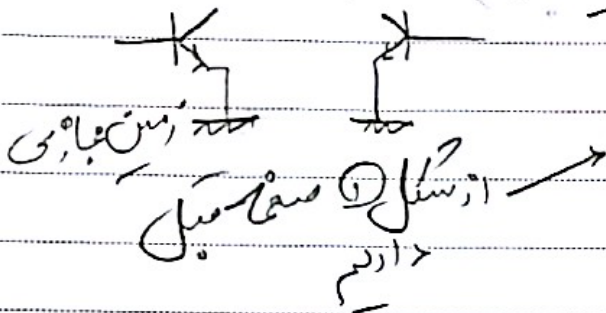 زمین مجازی
از شکل ① صفحه قبل
داریم